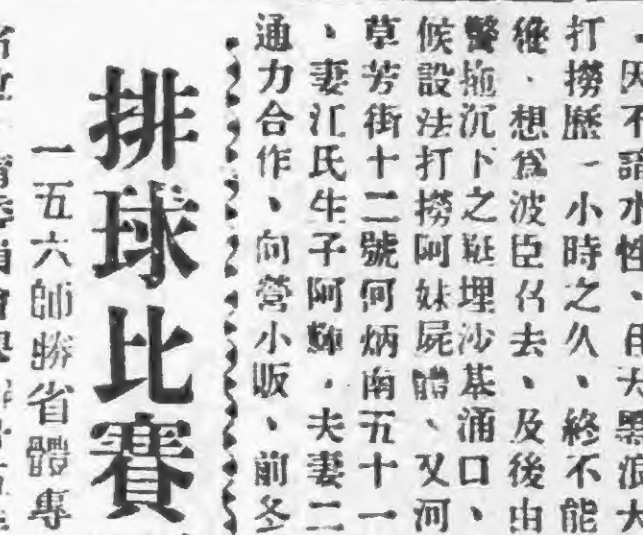 因不諳水性、由大風浪大
打撈歷一小時之久、終不能
後·想爲波臣召去、及後由
警拖沉下之艇埋沙基涌口、
候設法打撈阿妹屍體、又河
草芳街十二號何炳南五十一
、妻江氏生子阿、夫妻二
通力合作、向營小販、前冬
排球比賽
一五六師勝省體專